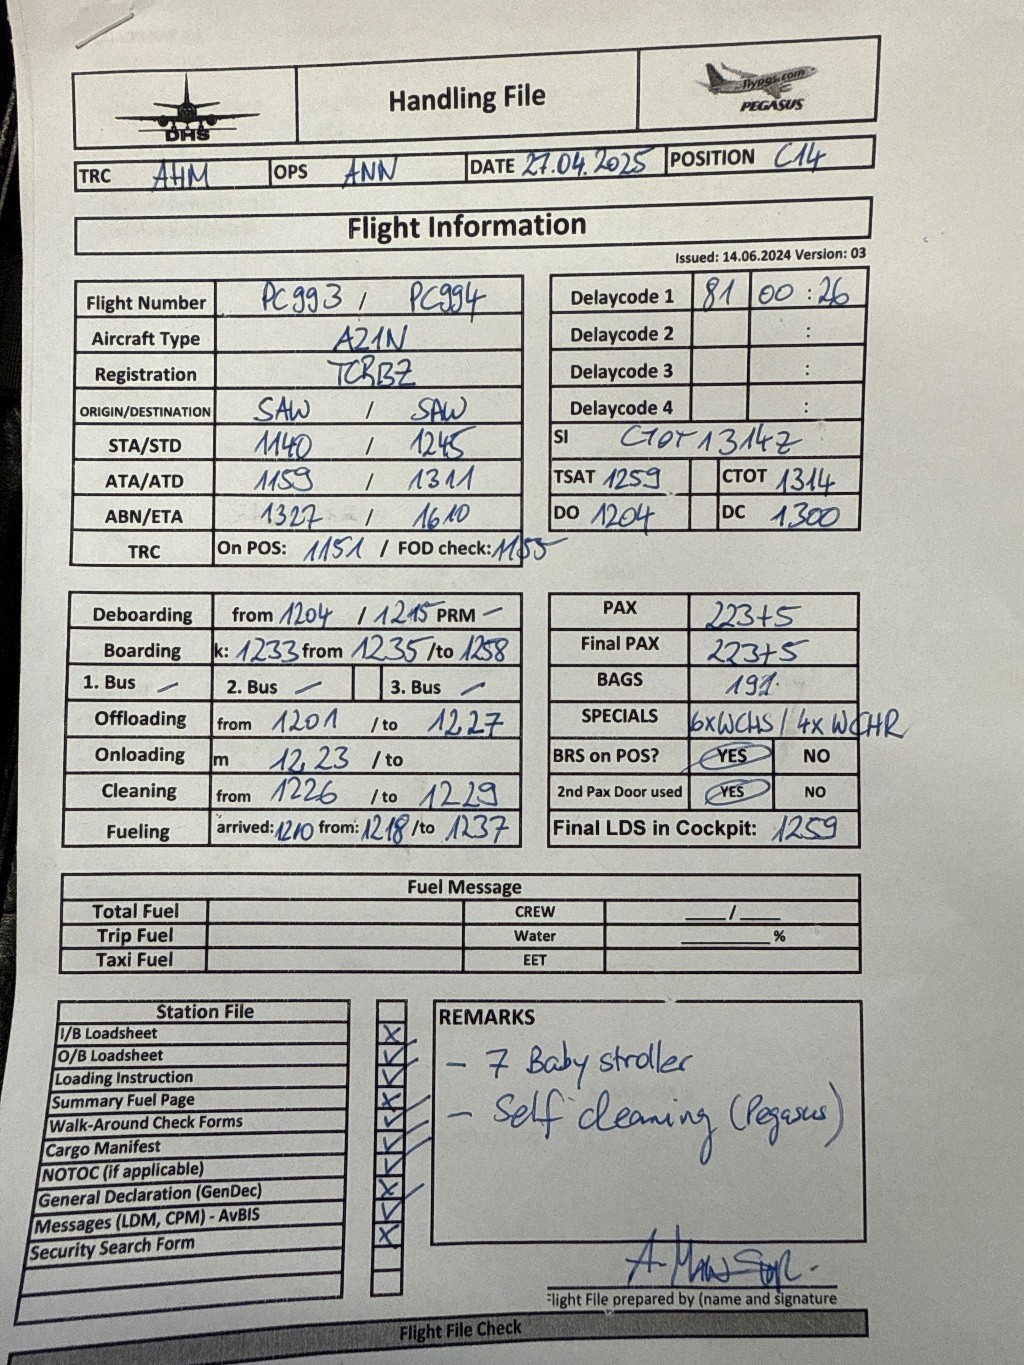 DHS
Handling File
flypgs.com
PEGASUS
TRC AHM OPS ANN DATE 27.04.2025 POSITION C14
Flight Information
Issued: 14.06.2024 Version: 03
Flight Number PC993 / PC994
Aircraft Type A21N
Registration TCRBZ
ORIGIN/DESTINATION SAW / SAW
STA/STD 1140 / 1245
ATA/ATD 1159 / 1311
ABN/ETA 1327 / 1610
TRC On POS: 1151 / FOD check: 1155
Delaycode 1 81 00 : 26
Delaycode 2 :
Delaycode 3 :
Delaycode 4 :
SI CTOT 1314z
TSAT 1259 CTOT 1314
DO 1204 DC 1300
Deboarding from 1204 / 1215 PRM –
Boarding k: 1233 from 1235 /to 1258
1. Bus – 2. Bus – 3. Bus –
Offloading from 1201 /to 1227
Onloading m 1223 /to
Cleaning from 1226 /to 1229
Fueling arrived: 1210 from: 1218 /to 1237
PAX 223+5
Final PAX 223+5
BAGS 191
SPECIALS 6xWCHS / 4x WCHR
BRS on POS? YES NO
2nd Pax Door used YES NO
Final LDS in Cockpit: 1259
Fuel Message
Total Fuel CREW ___/___
Trip Fuel Water ______%
Taxi Fuel EET
Station File
I/B Loadsheet X
O/B Loadsheet ✓
Loading Instruction ✓
Summary Fuel Page X
Walk-Around Check Forms ✓
Cargo Manifest ✓
NOTOC (if applicable) ✓
General Declaration (GenDec) X
Messages (LDM, CPM) - AvBIS ✓
Security Search Form X
REMARKS
– 7 Baby stroller
– Self cleaning (Pegasus)
light File prepared by (name and signature
Flight File Check